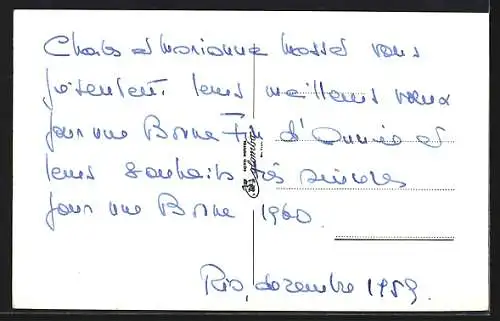 Charles et Marianne Mosset vous
présentent leurs meilleurs voeux
pour une Bonne Fin d'Année et
leurs souhaits très sincères
pour une Bonne 1960.
Rio, dezembre 1959.
colombo